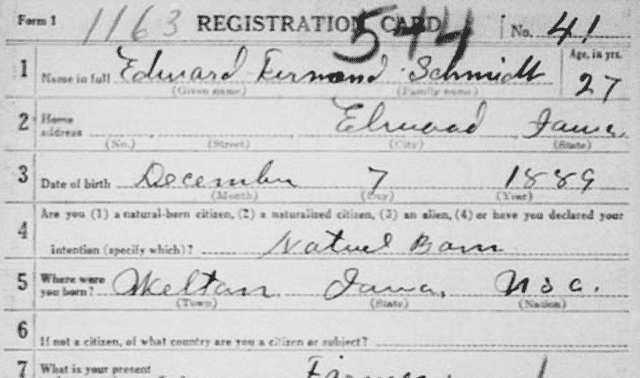 Form 1 1163 REGISTRATION CARD 544 No. 41
1 Name in full Edward Fermond Schmidt Age, in yrs. 27
(Given name) (Family name)
2 Home address Elwood Iowa
(No.) (Street) (City) (State)
3 Date of birth December 7 1889
(Month) (Day) (Year)
4 Are you (1) a natural-born citizen, (2) a naturalized citizen, (3) an alien, (4) or have you declared your
intention (specify which)? Natuel Born
5 Where were you born? Weltan Iowa, USA.
(Town) (State) (Nation)
6 If not a citizen, of what country are you a citizen or subject?
7 What is your present Farmer